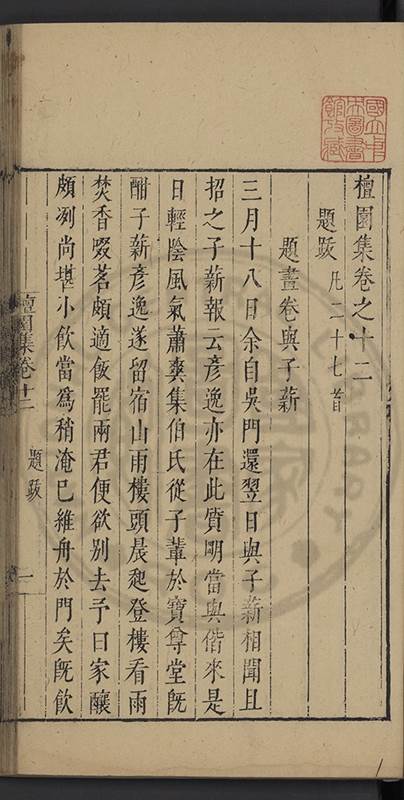 檀園集卷之十二
題跋 凡二十七首
題畫卷與子薪
三月十八日余自吳門還翌日與子薪相聞且
招之子薪報云彥逸亦在此質明當與偕來是
日輕陰風氣蕭爽集伯氏從子輩於寶尊堂旣
酣子薪彥逸遂留宿山雨樓頭晨起登樓看雨
焚香啜茗頗適飯罷兩君便欲別去予曰家釀
頗冽尚堪小飲當爲稍淹已維舟於門矣旣飲
檀園集卷十二
題跋
一
國立中
央圖書
館收藏